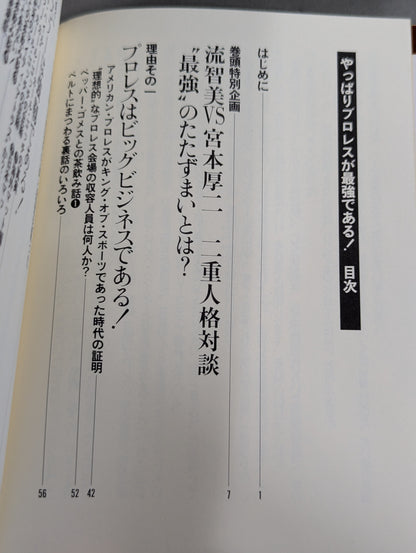 やっぱりプロレスが最強である! 目次
はじめに 1
巻頭特別企画
流智美VS宮本厚二 二重人格対談 7
"最強"のたたずまいとは?
理由その一
プロレスはビッグビジネスである!
アメリカン・プロレスがキング・オブ・スポーツであった時代の証明 42
"理想的"なプロレス会場の収容人員は何人か? 52
ペッパー・ゴメスとの茶飲み話❶
ベルトにまつわる裏話のいろいろ 56